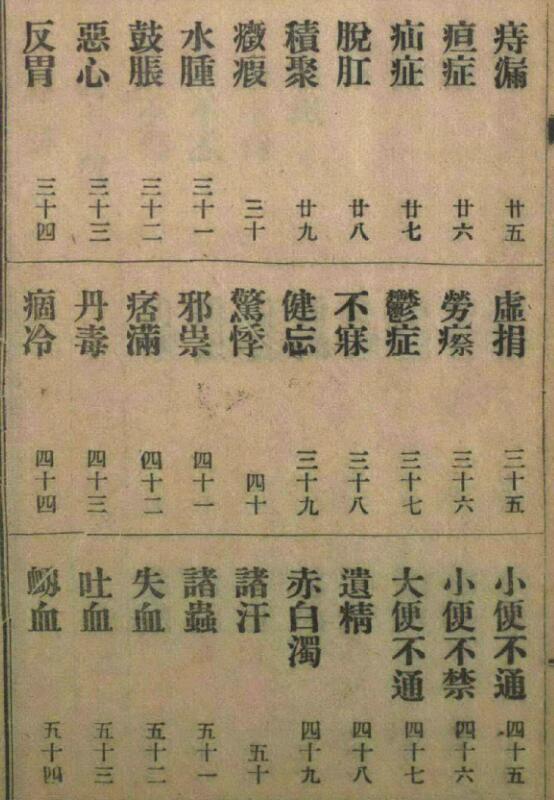 痔漏 廿五
疸症 廿六
疝症 廿七
脫肛 廿八
積聚 廿九
癥瘕 三十
水腫 三十一
鼓脹 三十二
惡心 三十三
反胃 三十四
虛損 三十五
勞瘵 三十六
鬱症 三十七
不寐 三十八
健忘 三十九
驚悸 四十
邪祟 四十一
痞滿 四十二
丹毒 四十三
痼冷 四十四
小便不通 四十五
小便不禁 四十六
大便不通 四十七
遺精 四十八
赤白濁 四十九
諸汗 五十
諸蟲 五十一
失血 五十二
吐血 五十三
血 五十四